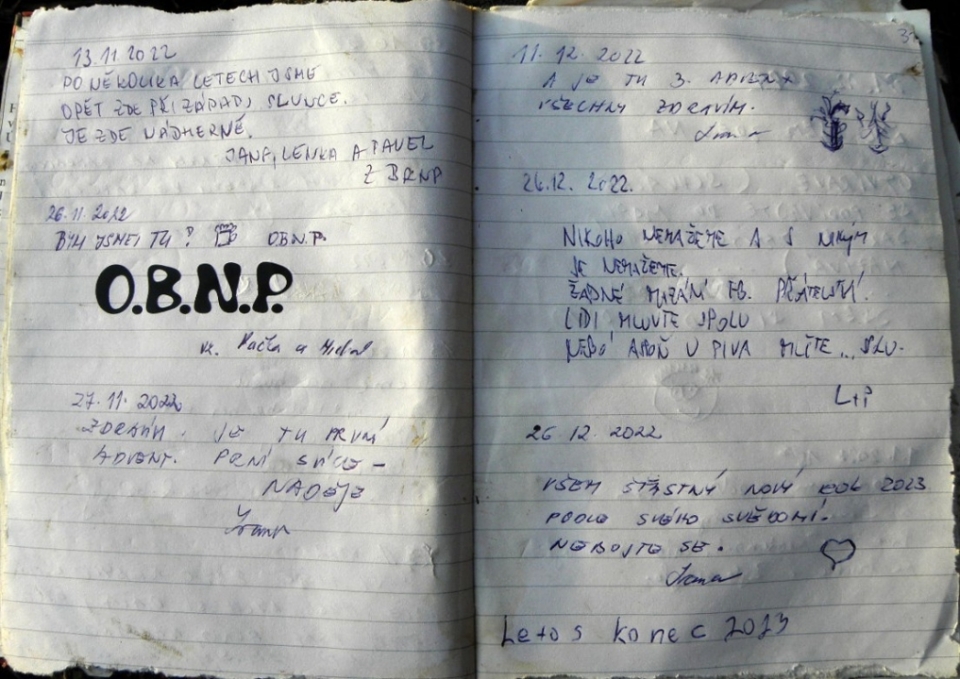 13.11.2022
PO NĚKOLIKA LETECH JSME
OPĚT ZDE PŘI ZÁPADJ SLUNCE.
JE ZDE NÁDHERNĚ.
JANA, LENKA A PAVEL
Z BRNA
26.11.2022
BYLI JSME I TU? O.B.N.P.
O.B.N.P.
a
27.11.2022
ZDRAVÍM. JE TU PRVNÍ
ADVENT. PRNÍ SVÍCE -
NADĚJE
3
11.12.2022
A JE TU 3. ADVENT
VŠECHNY ZDRAVÍM.
26.12.2022.
NIKOHO NEMAŽEME A S NIKÝM
SE NEMAŽEME.
ŽÁDNÉ MAZÁNÍ FB. PŘÁTELSTVÍ.
LIDI MLUVTE SPOLU
NEBO ASPOŇ U PIVA MLČTE... SLU.
L+P
26.12.2022
VŠEM ŠŤASTNÝ NOVÝ ROK 2023
PODLE SVÉHO SVĚDOMÍ.
NEBOJTE SE.
Letos konec 2023